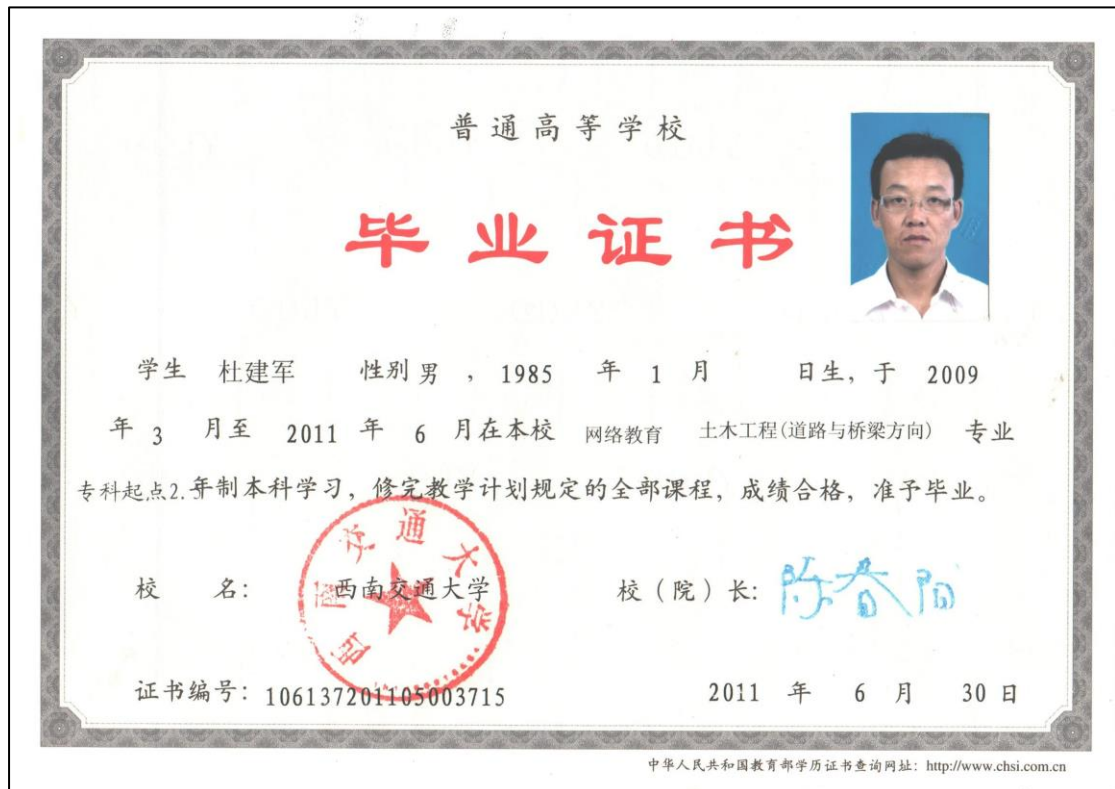 普通高等学校
毕业证书
学生 杜建军 性别 男 , 1985 年 1 月 日生, 于 2009
年 3 月至 2011 年 6 月在本校 网络教育 土木工程(道路与桥梁方向) 专业
专科起点2.5年制本科学习, 修完教学计划规定的全部课程, 成绩合格, 准予毕业。
校 名: 西南交通大学
西南交通大学
校(院)长: 陈春阳
证书编号: 106137201105003715
2011 年 6 月 30 日
中华人民共和国教育部学历证书查询网址: http://www.chsi.com.cn